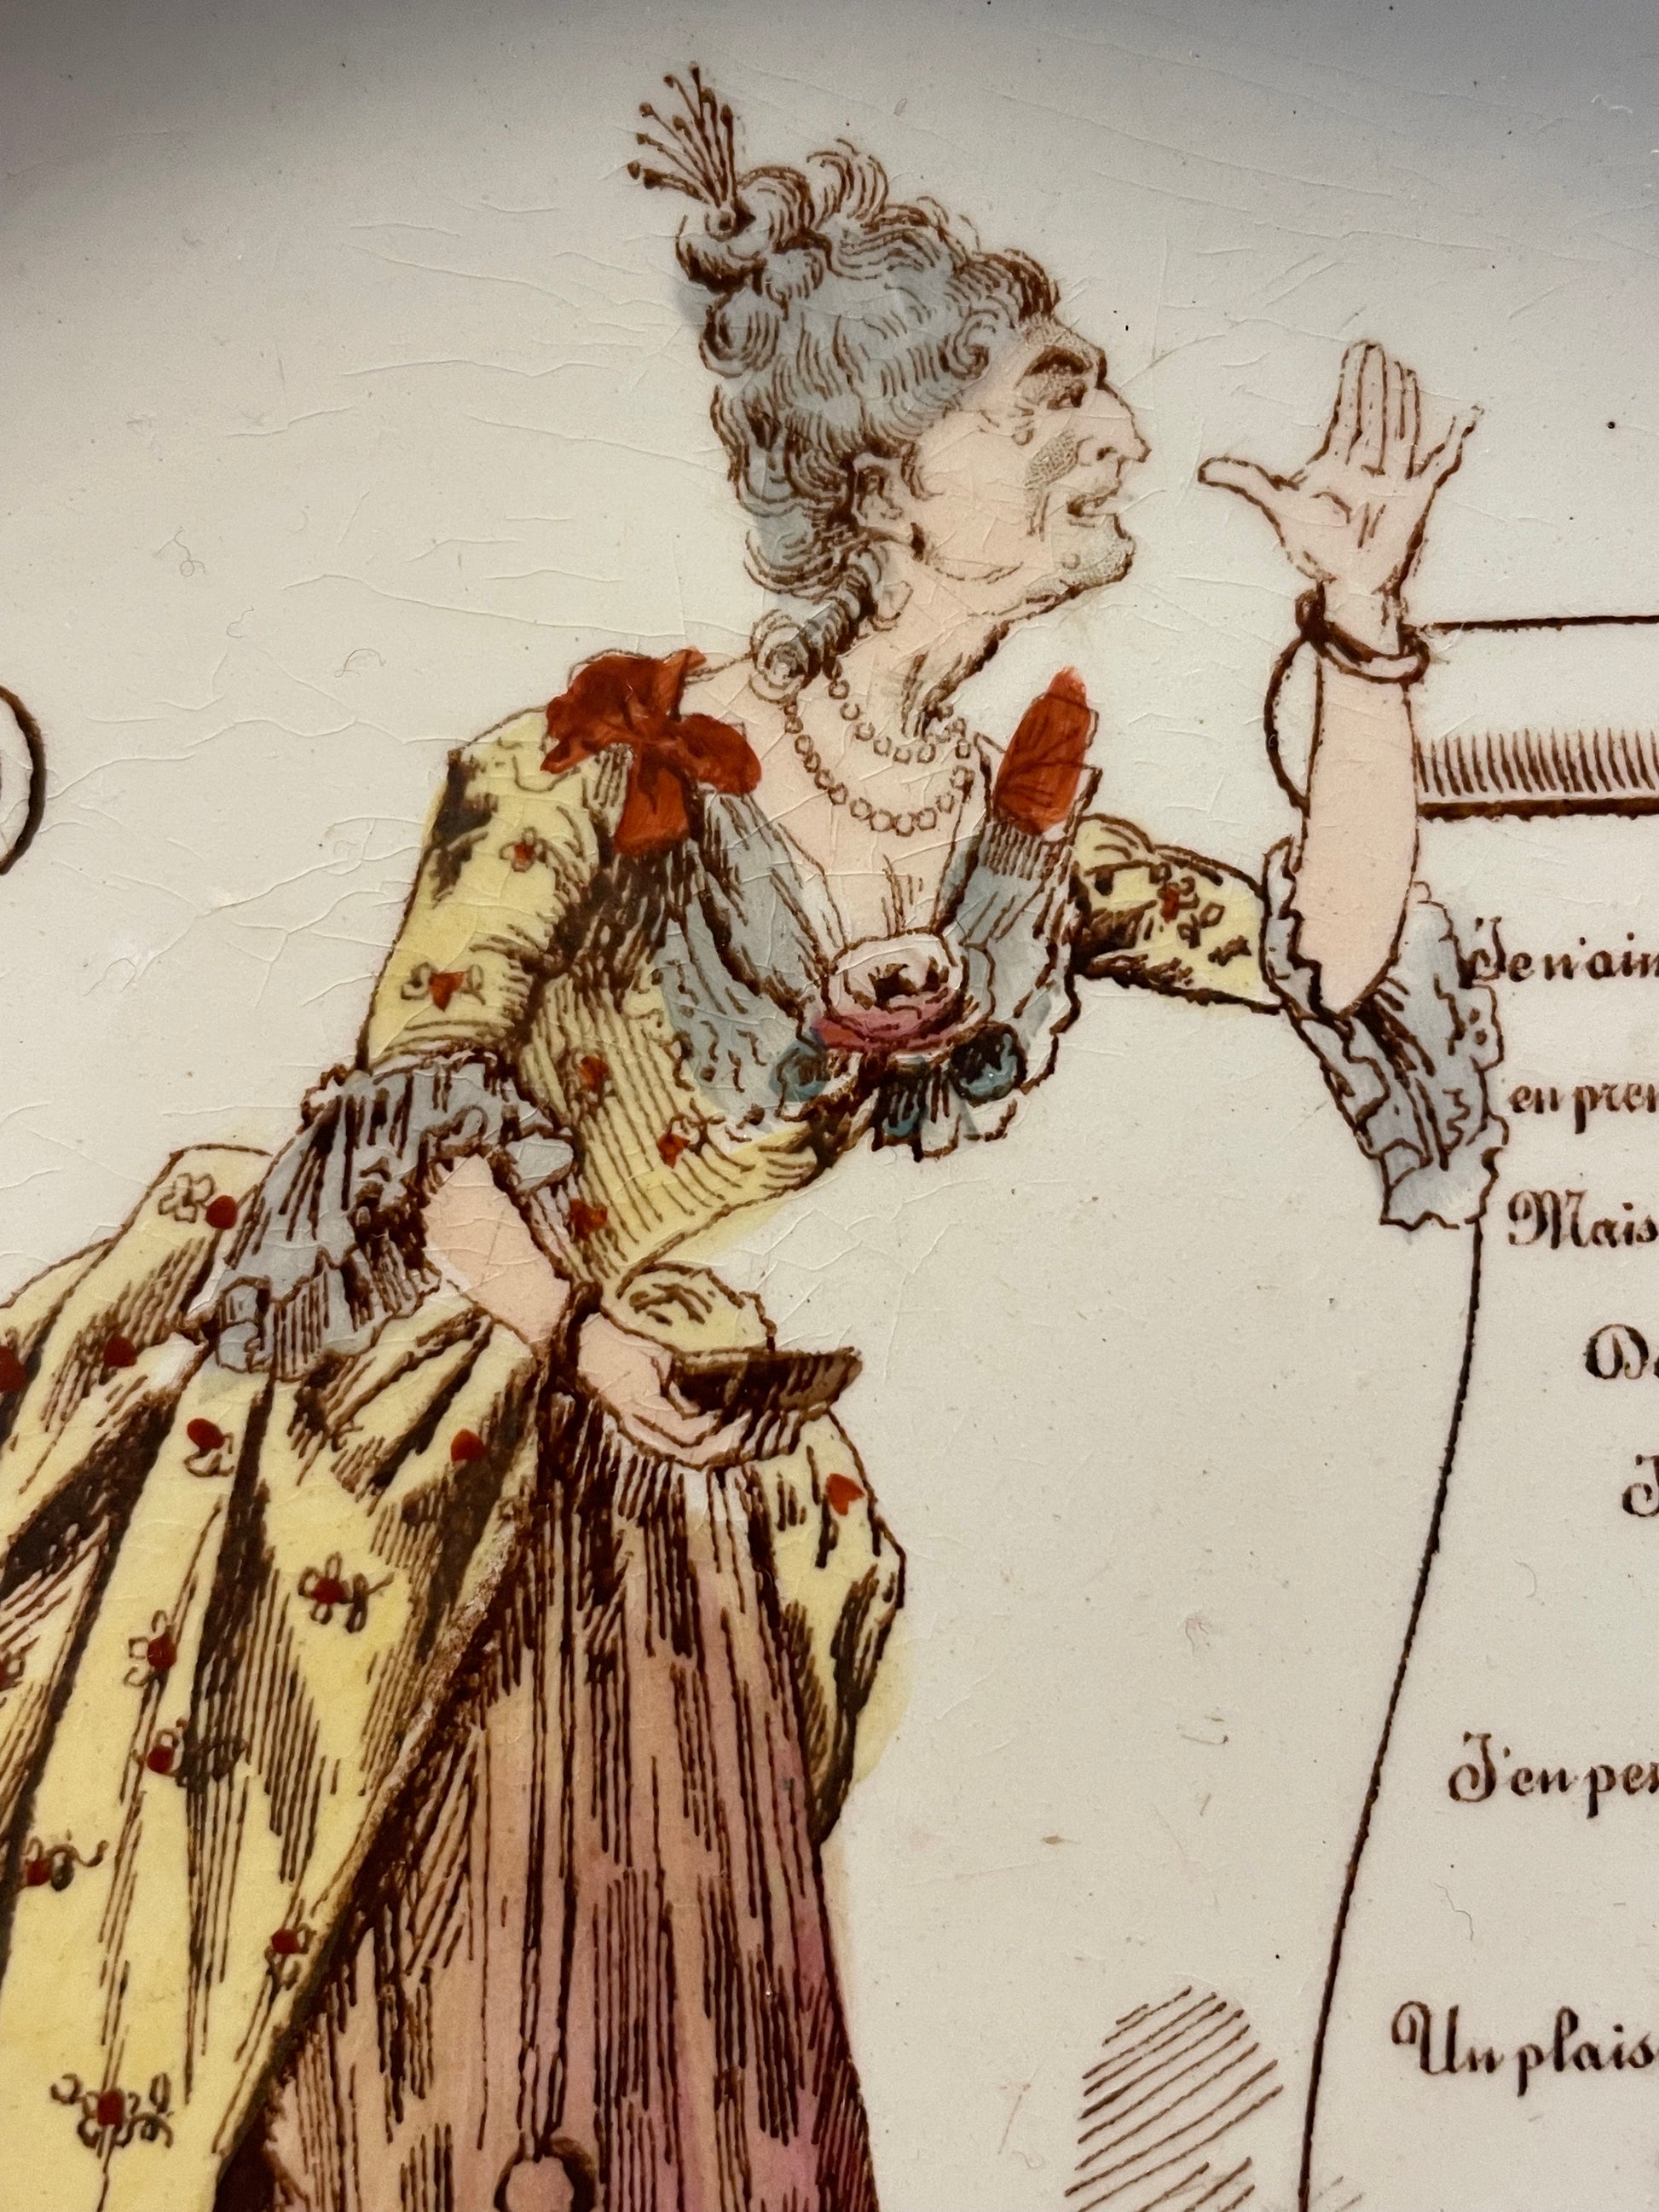 Je n'aim
en pren
Mais
De
J
J'en per
Un plais